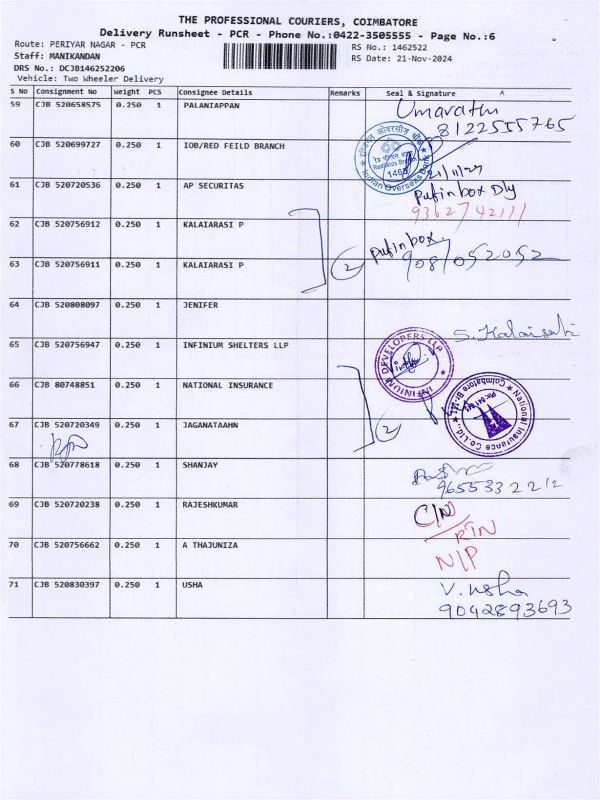 THE PROFESSIONAL COURIERS, COIMBATORE
Delivery Runsheet - PCR - Phone No.:0422-3505555 - Page No.:6
Route: PERIYAR NAGAR - PCR
RS No.: 1462522
Staff: MANIKANDAN
RS Date: 21-Nov-2024
DRS No.: DCJB146252206
Vehicle: Two Wheeler Delivery
S No Consignment No Weight PCS Consignee Details Remarks Seal & Signature
59 CJB 520658575 0.250 1 PALANIAPPAN Umarathi
8122555765
60 CJB 520699727 0.250 1 IOB/RED FEILD BRANCH
Indian Overseas Bank
1463
21/11/24
61 CJB 520720536 0.250 1 AP SECURITAS Putinbox Dly
9362742111
62 CJB 520756912 0.250 1 KALAIARASI P
2 Putinbox
9087052052
63 CJB 520756911 0.250 1 KALAIARASI P
64 CJB 520808097 0.250 1 JENIFER
S. Kalaiselvi
65 CJB 520756947 0.250 1 INFINIUM SHELTERS LLP
INFINIUM DEVELOPERS LLP
66 CJB 80748851 0.250 1 NATIONAL INSURANCE
National Insurance Co.Ltd., Coimbatore
2
67 CJB 520720349 0.250 1 JAGANATAAHN
68 CJB 520778618 0.250 1 SHANJAY
9655332212
69 CJB 520720238 0.250 1 RAJESHKUMAR C/N
RTN
70 CJB 520756662 0.250 1 A THAJUNIZA N/P
71 CJB 520830397 0.250 1 USHA V. Usha
9042893693